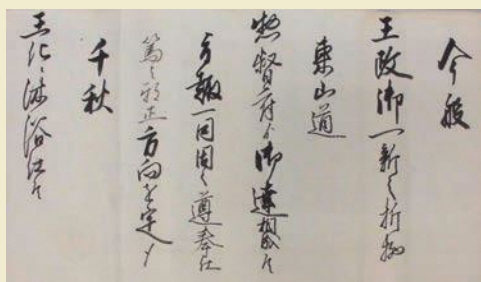 今般
王政御一新之折柄
東山道
惣督府ゟ御達相成候
ニ付 一同固く遵奉仕
篤と邪正方向を定メ
千秋
王化ニ沐浴仕候